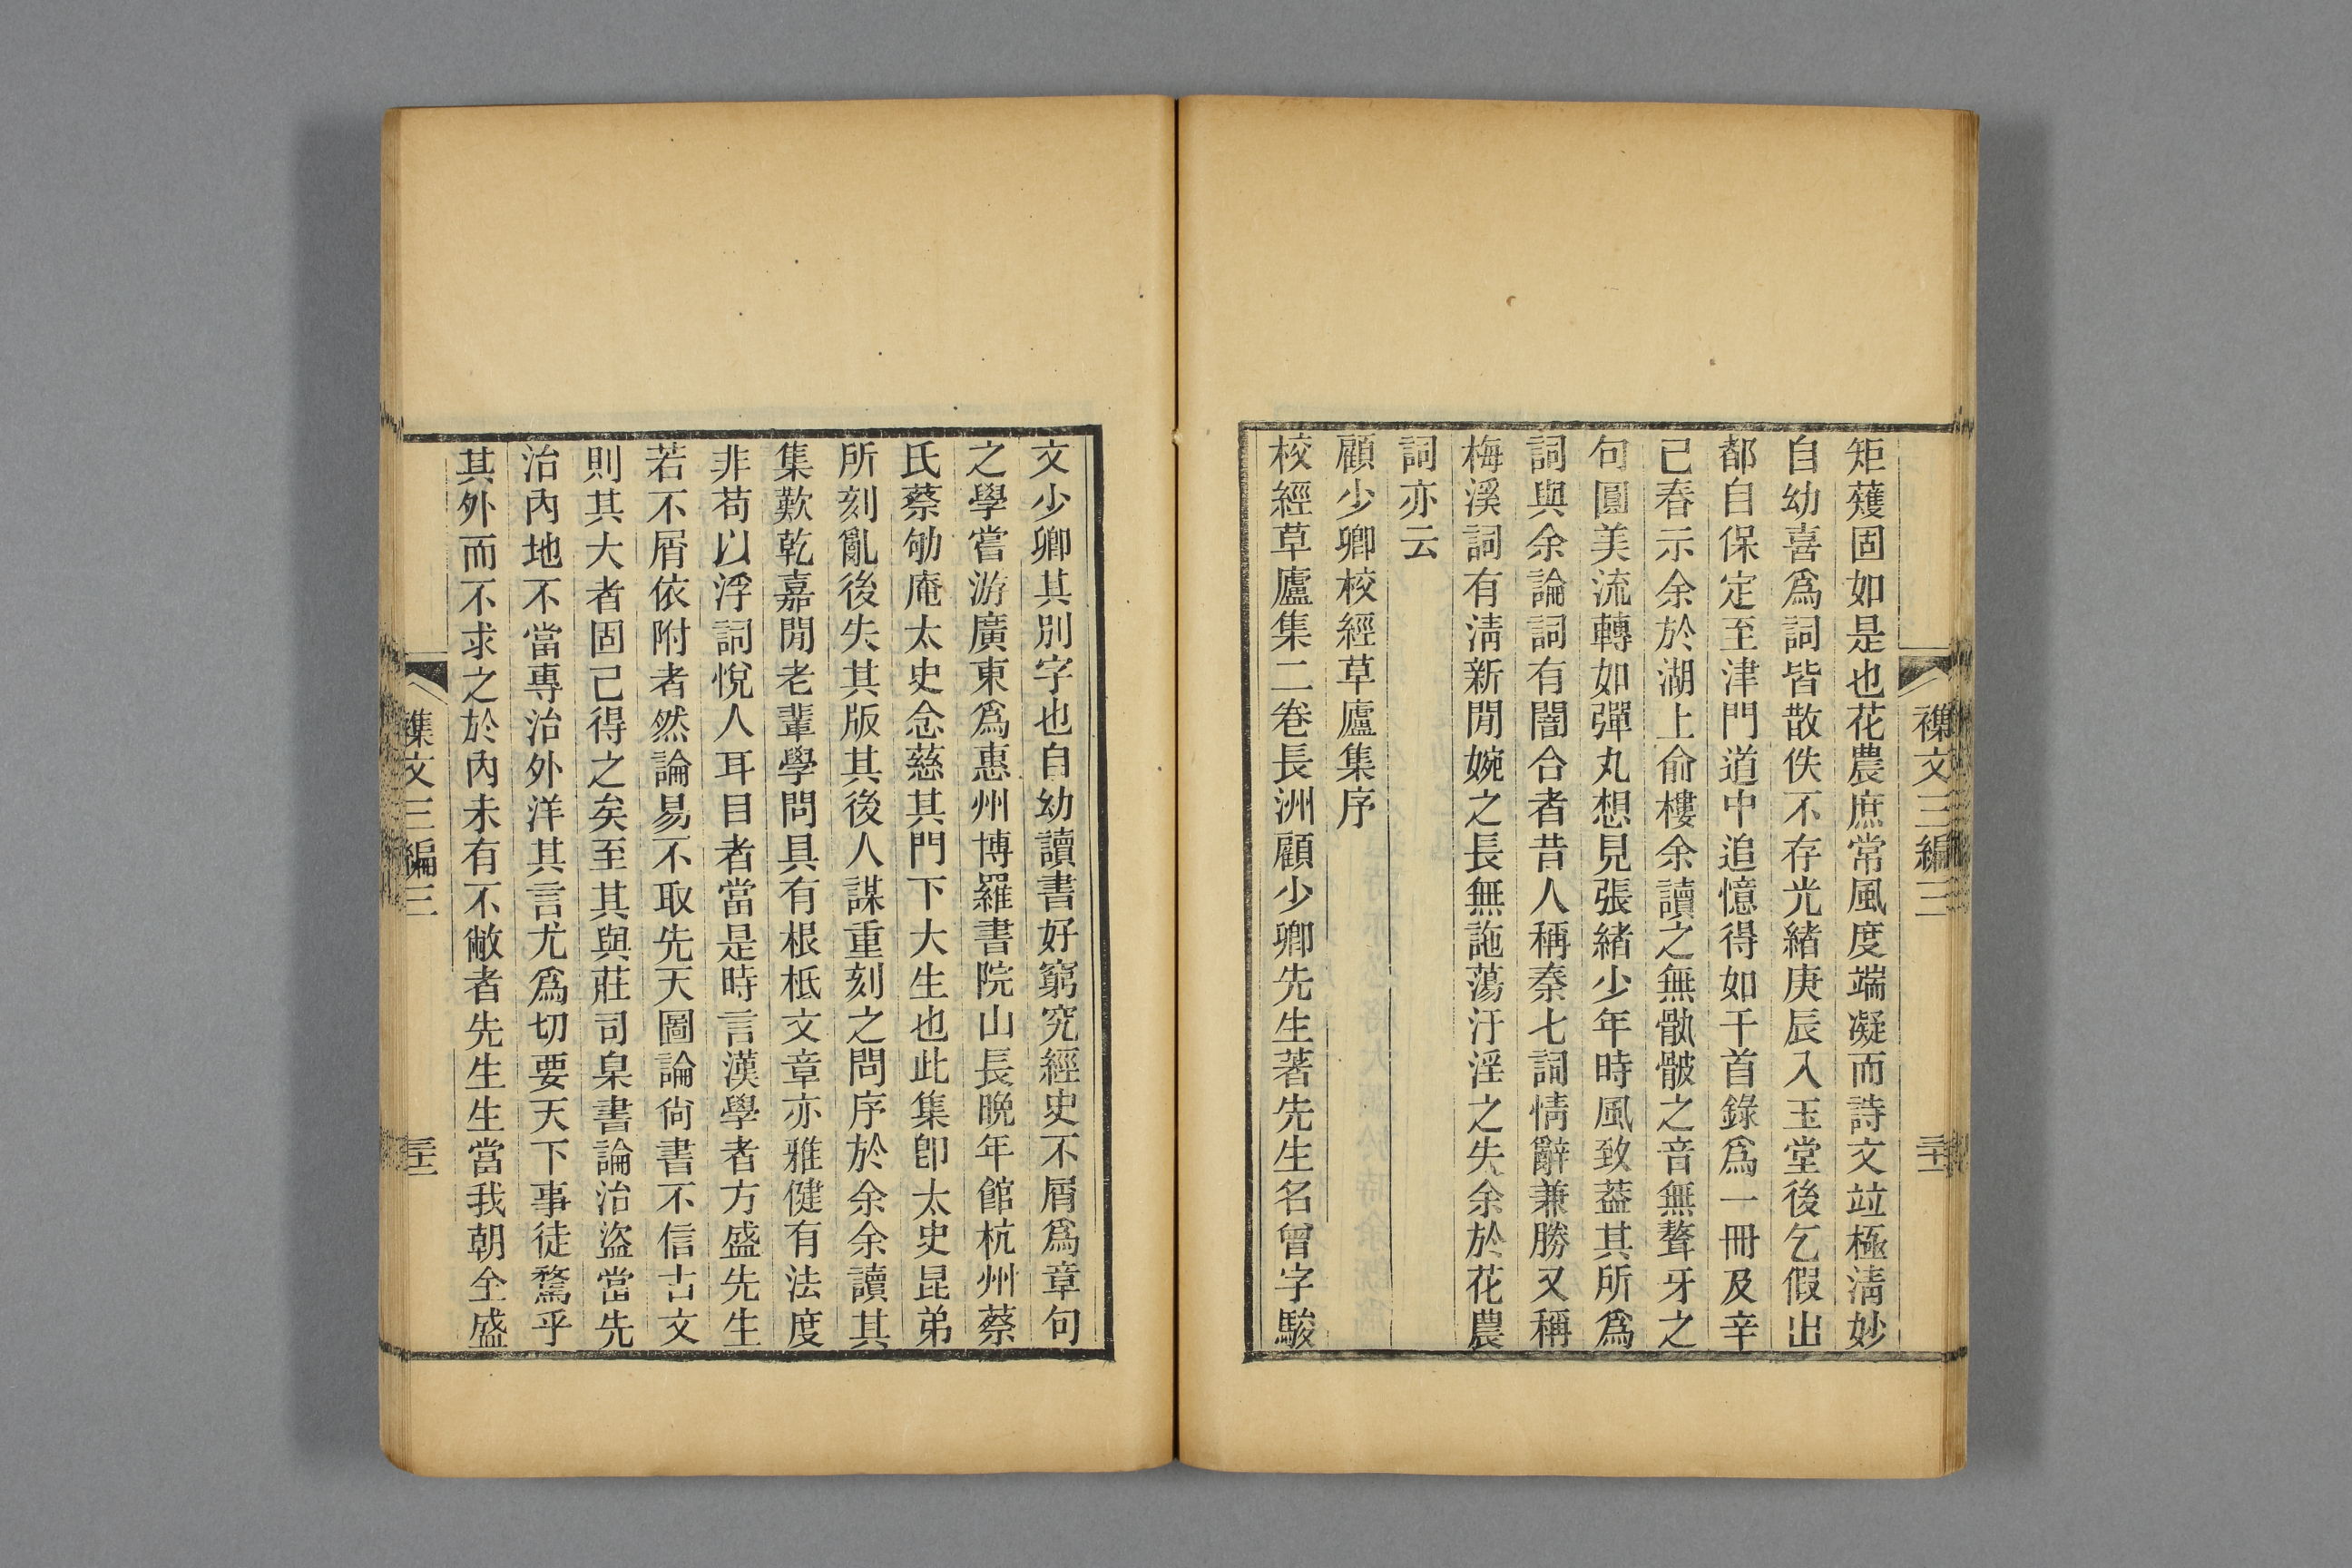 襍文三編三
矩矱固如是也花農庶常風度端凝而詩文竝極淸妙
自幼喜爲詞皆散佚不存光緖庚辰入玉堂後乞假出
都自保定至津門道中追憶得如干首錄爲一冊及辛
己春示余於湖上俞樓余讀之無骩骳之音無聱牙之
句圓美流轉如彈丸想見張緖少年時風致葢其所爲
詞與余論詞有闇合者昔人稱秦七詞情辭兼勝又稱
梅溪詞有淸新閒婉之長無詑蕩汙淫之失余於花農
詞亦云
顧少卿校經草廬集序
校經草廬集二卷長洲顧少卿先生著先生名曾字駿
文少卿其別字也自幼讀書好窮究經史不屑爲章句
之學嘗游廣東爲惠州博羅書院山長晩年館杭州蔡
氏蔡劬庵太史念慈其門下大生也此集卽太史昆弟
所刻亂後失其版其後人謀重刻之問序於余余讀其
集歎乾嘉閒老輩學問具有根柢文章亦雅健有法度
非苟以浮詞悅人耳目者當是時言漢學者方盛先生
若不屑依附者然論易不取先天圖論尙書不信古文
則其大者固己得之矣至其與莊司臬書論治盜當先
治內地不當專治外洋其言尤爲切要天下事徒騖乎
其外而不求之於內未有不敝者先生生當我朝全盛
襍文三編三